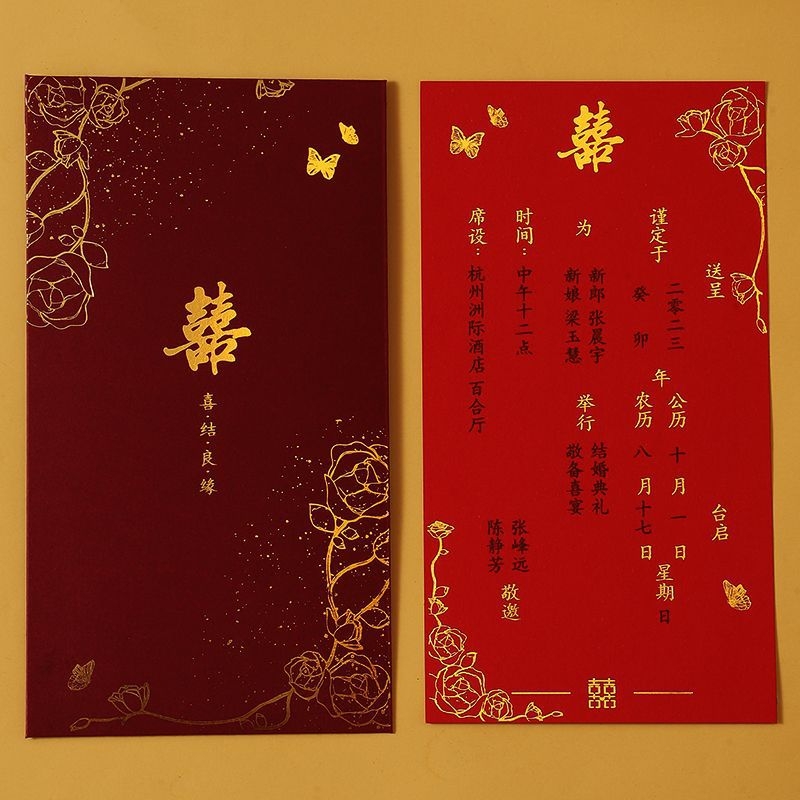 囍
喜·结·良·缘
囍
送呈
台启
谨定于
二零二三年公历十月一日星期日
癸卯 农历八月十七日
为
新郎 张晨宇
新娘 梁玉慧
举行
结婚典礼
敬备喜宴
时间：中午十二点
席设：杭州洲际酒店百合厅
张峰远
陈静芳
敬邀
囍